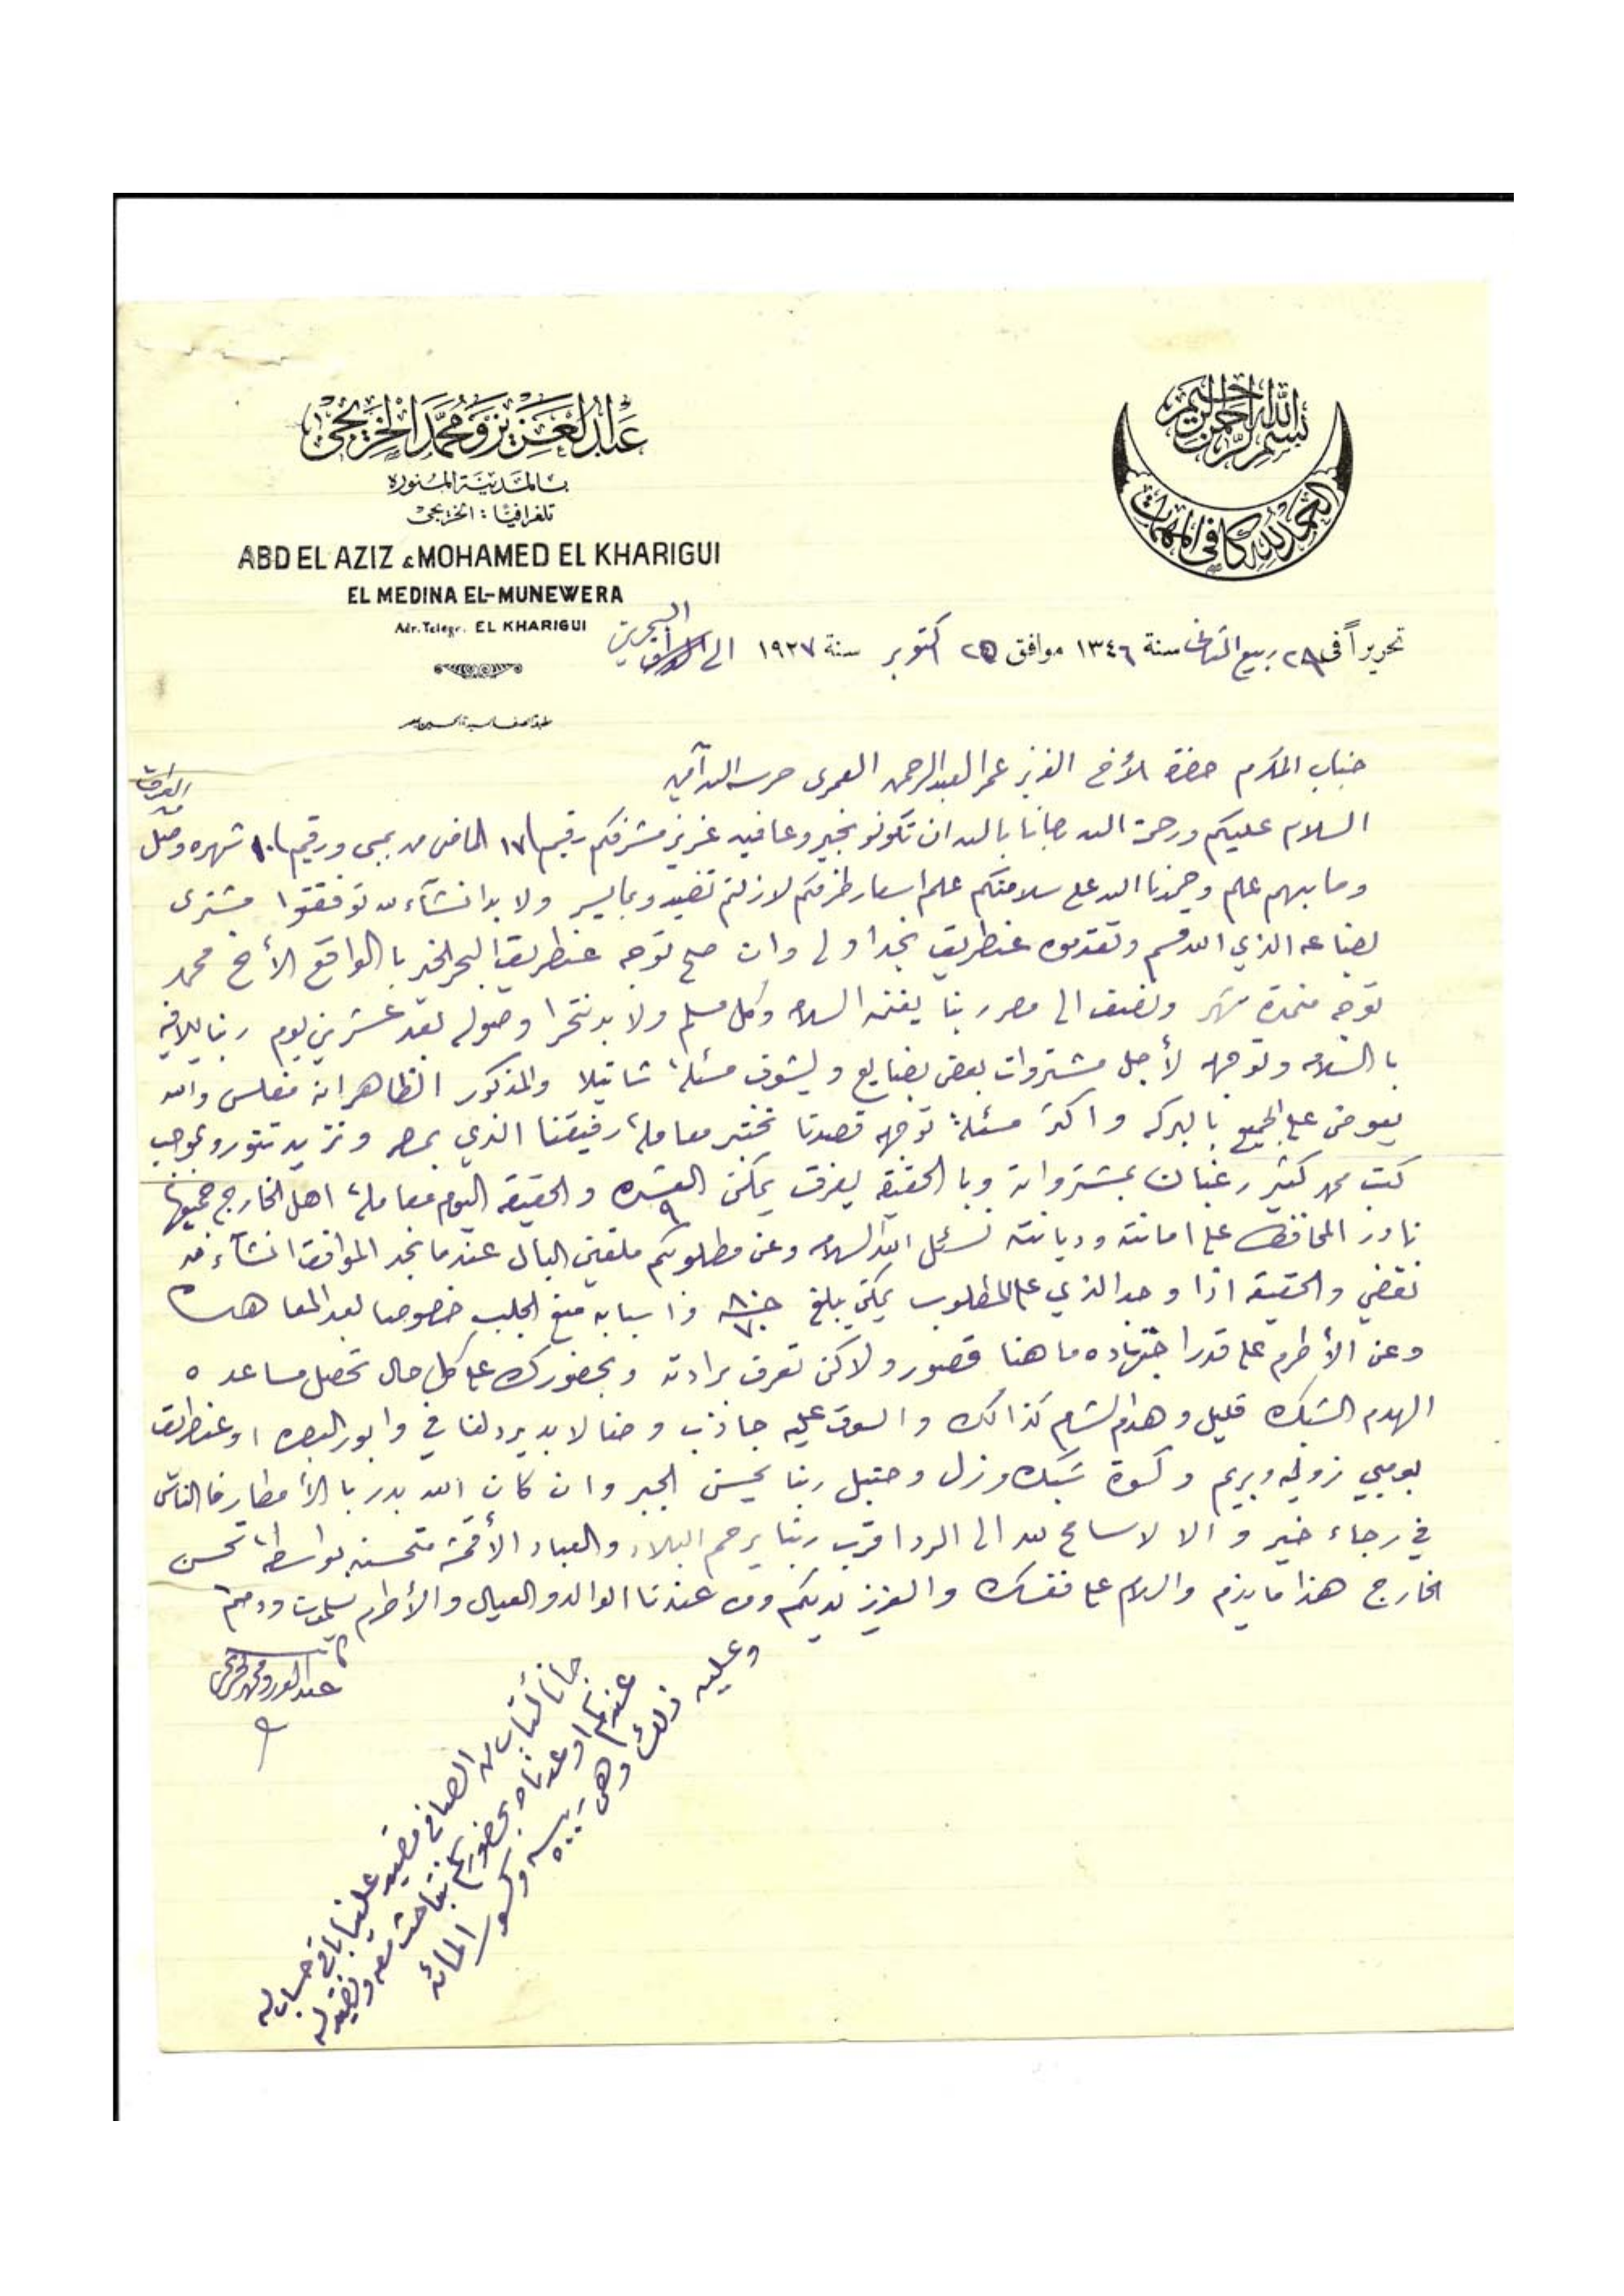 بسم الله الرحمن الرحيم
الحمد لله كافي المهمات
عبد العزيز ومحمد الخريجي
بالمدينة المنوره
تلغرافيا : الخريجي
ABD EL AZIZ & MOHAMED EL KHARIGUI
EL MEDINA EL-MUNEWERA
Adr. Telegr. EL KHARIGUI
تحريراً في ٢٨ ربيع الثاني سنة ١٣٤٦ موافق ٢٥ اكتوبر سنة ١٩٢٧ الى البحرين
جناب المكرم حضرة الأخ العزيز عمر العبد الرحمن العمرى حرسه الله آمين
السلام عليكم ورحمة الله رجانا بالله ان تكونو بخير وعافيه عزيز مشرفكم رقيم ١٧ الماضي من بمبى ورقيم ١٠ شهره وصل
من العراق
وما بهم علم وحمدنا الله على سلامتكم علم اسعار طرفكم لازلتم تفيدو بما يسر ولا بد انشآء الله توفقتوا مشترى
بضاعه الذي الله قسم وتقدموه عنطريق نجد اولى وان صح توجه عنطريق البحر الخير با الواقع الأخ محمد
توجه منمدة شهر ونصف الى مصر ربنا يغنمه السلامه وكل مسلم ولا بد نتحرا وصوله بعد عشرين يوم ربنا يلافيه
با السلامه وتوجهه لأجل مشتروات بعض بضايع وليشوف مسئلة شاتيلا والمذكور الظاهر انه مفلس والله
يعوض على الجميع با البركه واكثر مسئلة توجهه قصدنا نختبر معاملة رفيقنا الذي بمصر ونزيد تنورو بموجب
كتب محمد كثير رغبان بمشترواته وبا الحقيقه يفرق يمكن العشره ٩ والحقيقه اليوم معاملة اهل الخارج جميعها
نادر المحافظ على امانته وديانته نسئل الله السلامه وعن مطلوبكم ملقين البال عندما نجد الموافق انشآء الله
نقضي والحقيقه اذا وجد الذي على المطلوب يمكن يبلغ جنيه ٨٠ ٧٠ واسبابه منع الجلب خصوصا بعد المعاهده
وعن الأطرم على قدر اجتهاده ما هنا قصور ولاكن تعرف برادته وبحضورك على كل حال تحصل مساعده
الهدم الشبك قليل وهدم الشام كذالك والسوق عليه جاذب وحنا لابد يرد لنا في وابور البصره او عنطريق
بومبي زوليه وبريم وكسوة شبك وزل وحنبل ربنا يحسن الجبر وان كان الله بدر با الأمطار فا الناس
في رجاء خير والا لا سامح الله الى الردا اقرب ربنا يرحم البلاد والعباد الأقمشة متحسنه بواسطة تحسن
الخارج هذا ما يلزم والسلام على نفسك والعزيز لديكم ومن عندنا الوالد والعيال والأطرم يسلمون ودمتم
عبد العزيز ومحمد الخريجي
جانا كتاب من الصافي قصير علينا باقي حساب له
عندكم اوعدناه بحضوركم نتباحث معه ونقيد له
وعليه ذلك وهي ربيه وكسور المائه